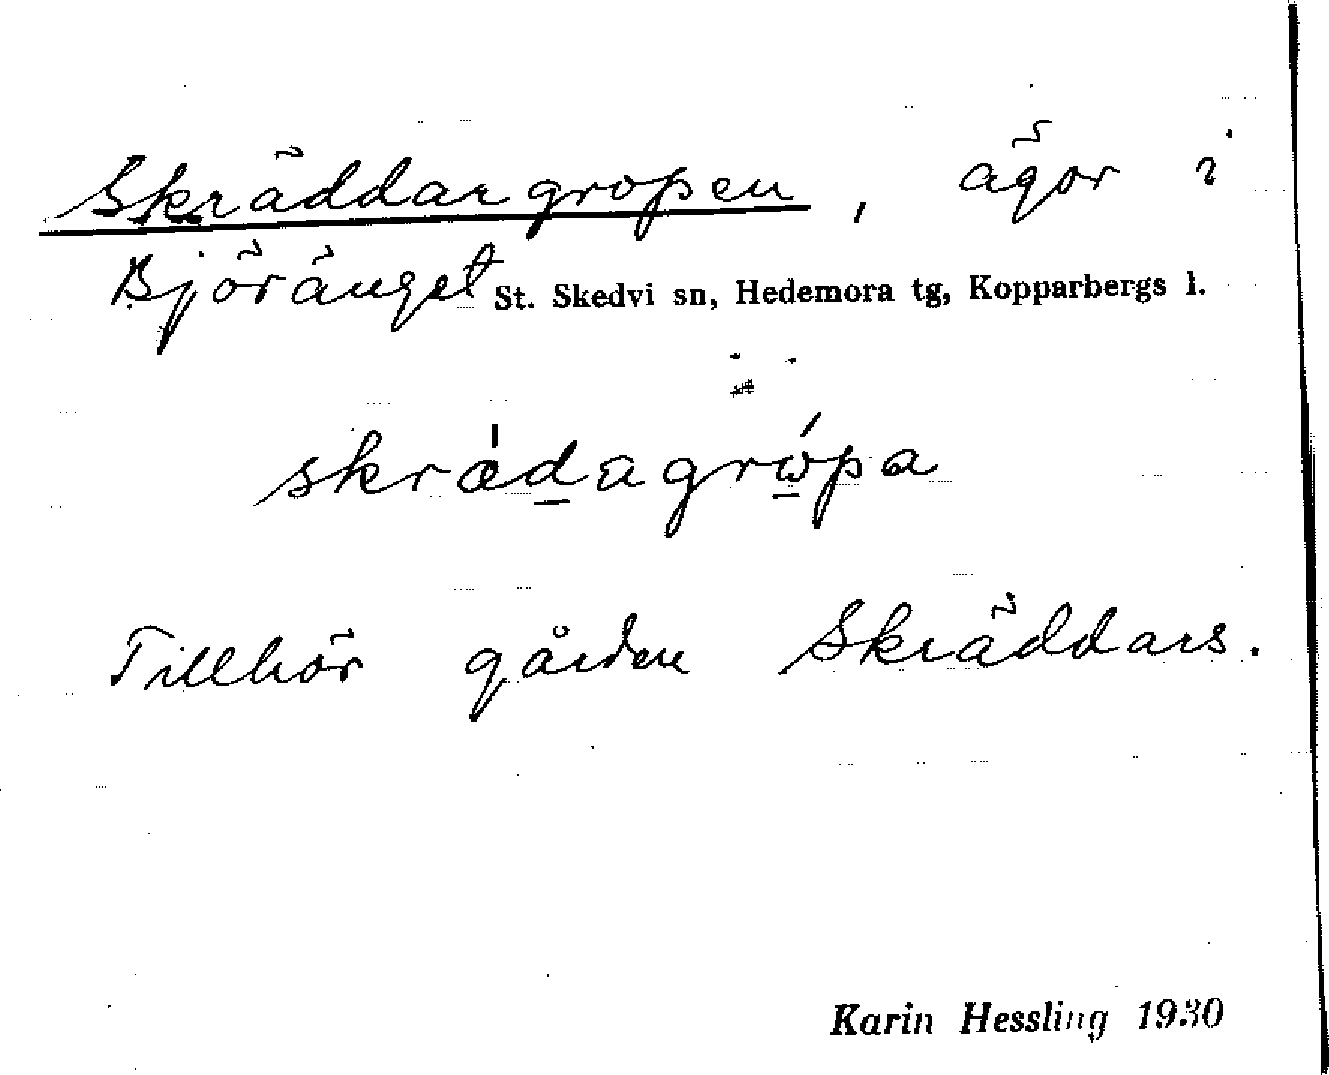 Skräddargropen, ägor i
Björänget St. Skedvi sn, Hedemora tg, Kopparbergs l.
skræ̍d̲agrώ̲pa
Tillhör gården Skräddars.
Karin Hessling 1930